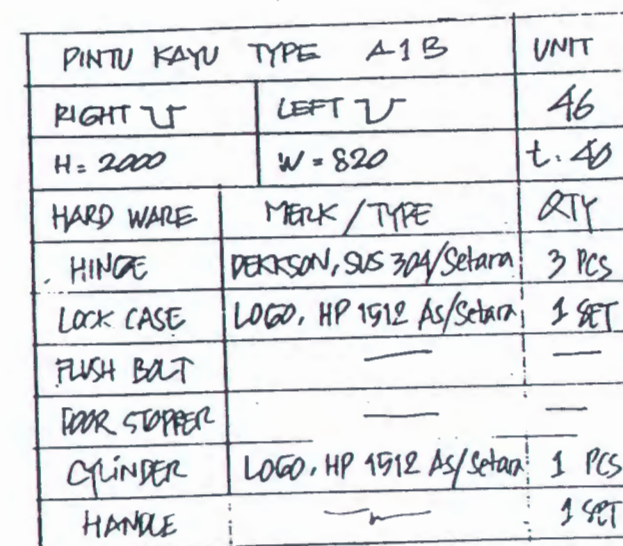 PINTU KAYU TYPE A1B UNIT
RIGHT LEFT 46
H = 2000 W = 820 t. 40
HARD WARE MERK / TYPE QTY
HINGE DEKKSON, SUS 304/Setara 3 PCS
LOCK CASE LOGO, HP 1512 As/Setara 1 SET
FLUSH BOLT — —
DOOR STOPPER — —
CYLINDER LOGO, HP 1512 As/Setara 1 PCS
HANDLE — 1 SET